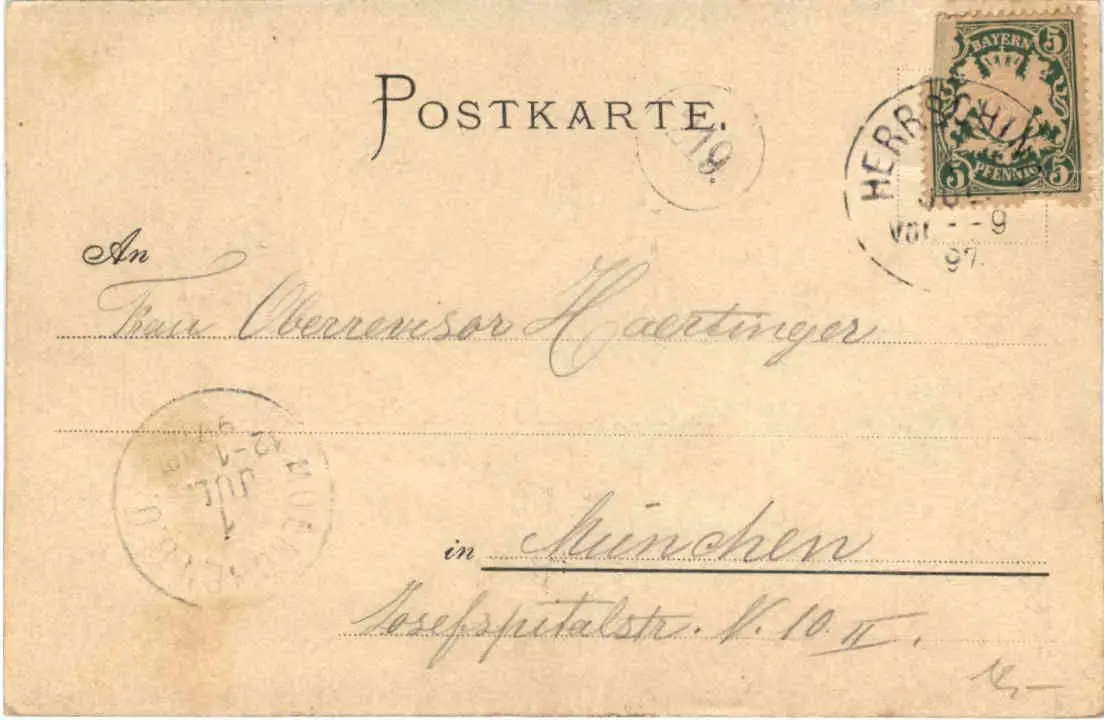 POSTKARTE.
BAYERN
5 5
5 PFENNIG 5
HERRSCHIN
JUL
Vor. - - 9
97
19.
An
Frau Oberrevisor Haertinger
MUENCHEN
1
JUL.
12-1
in München
Josefspitalstr. N. 10. II.